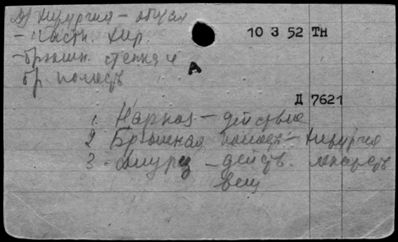 Хирургия – общая
– частн. хир.
10 3 52 ТН
– брюшн. стенка и
бр полость
А
Д 7621
1 Наркоз – действие
2 Брюшная полость – хирургия
3 – действ. лекарств
вещ